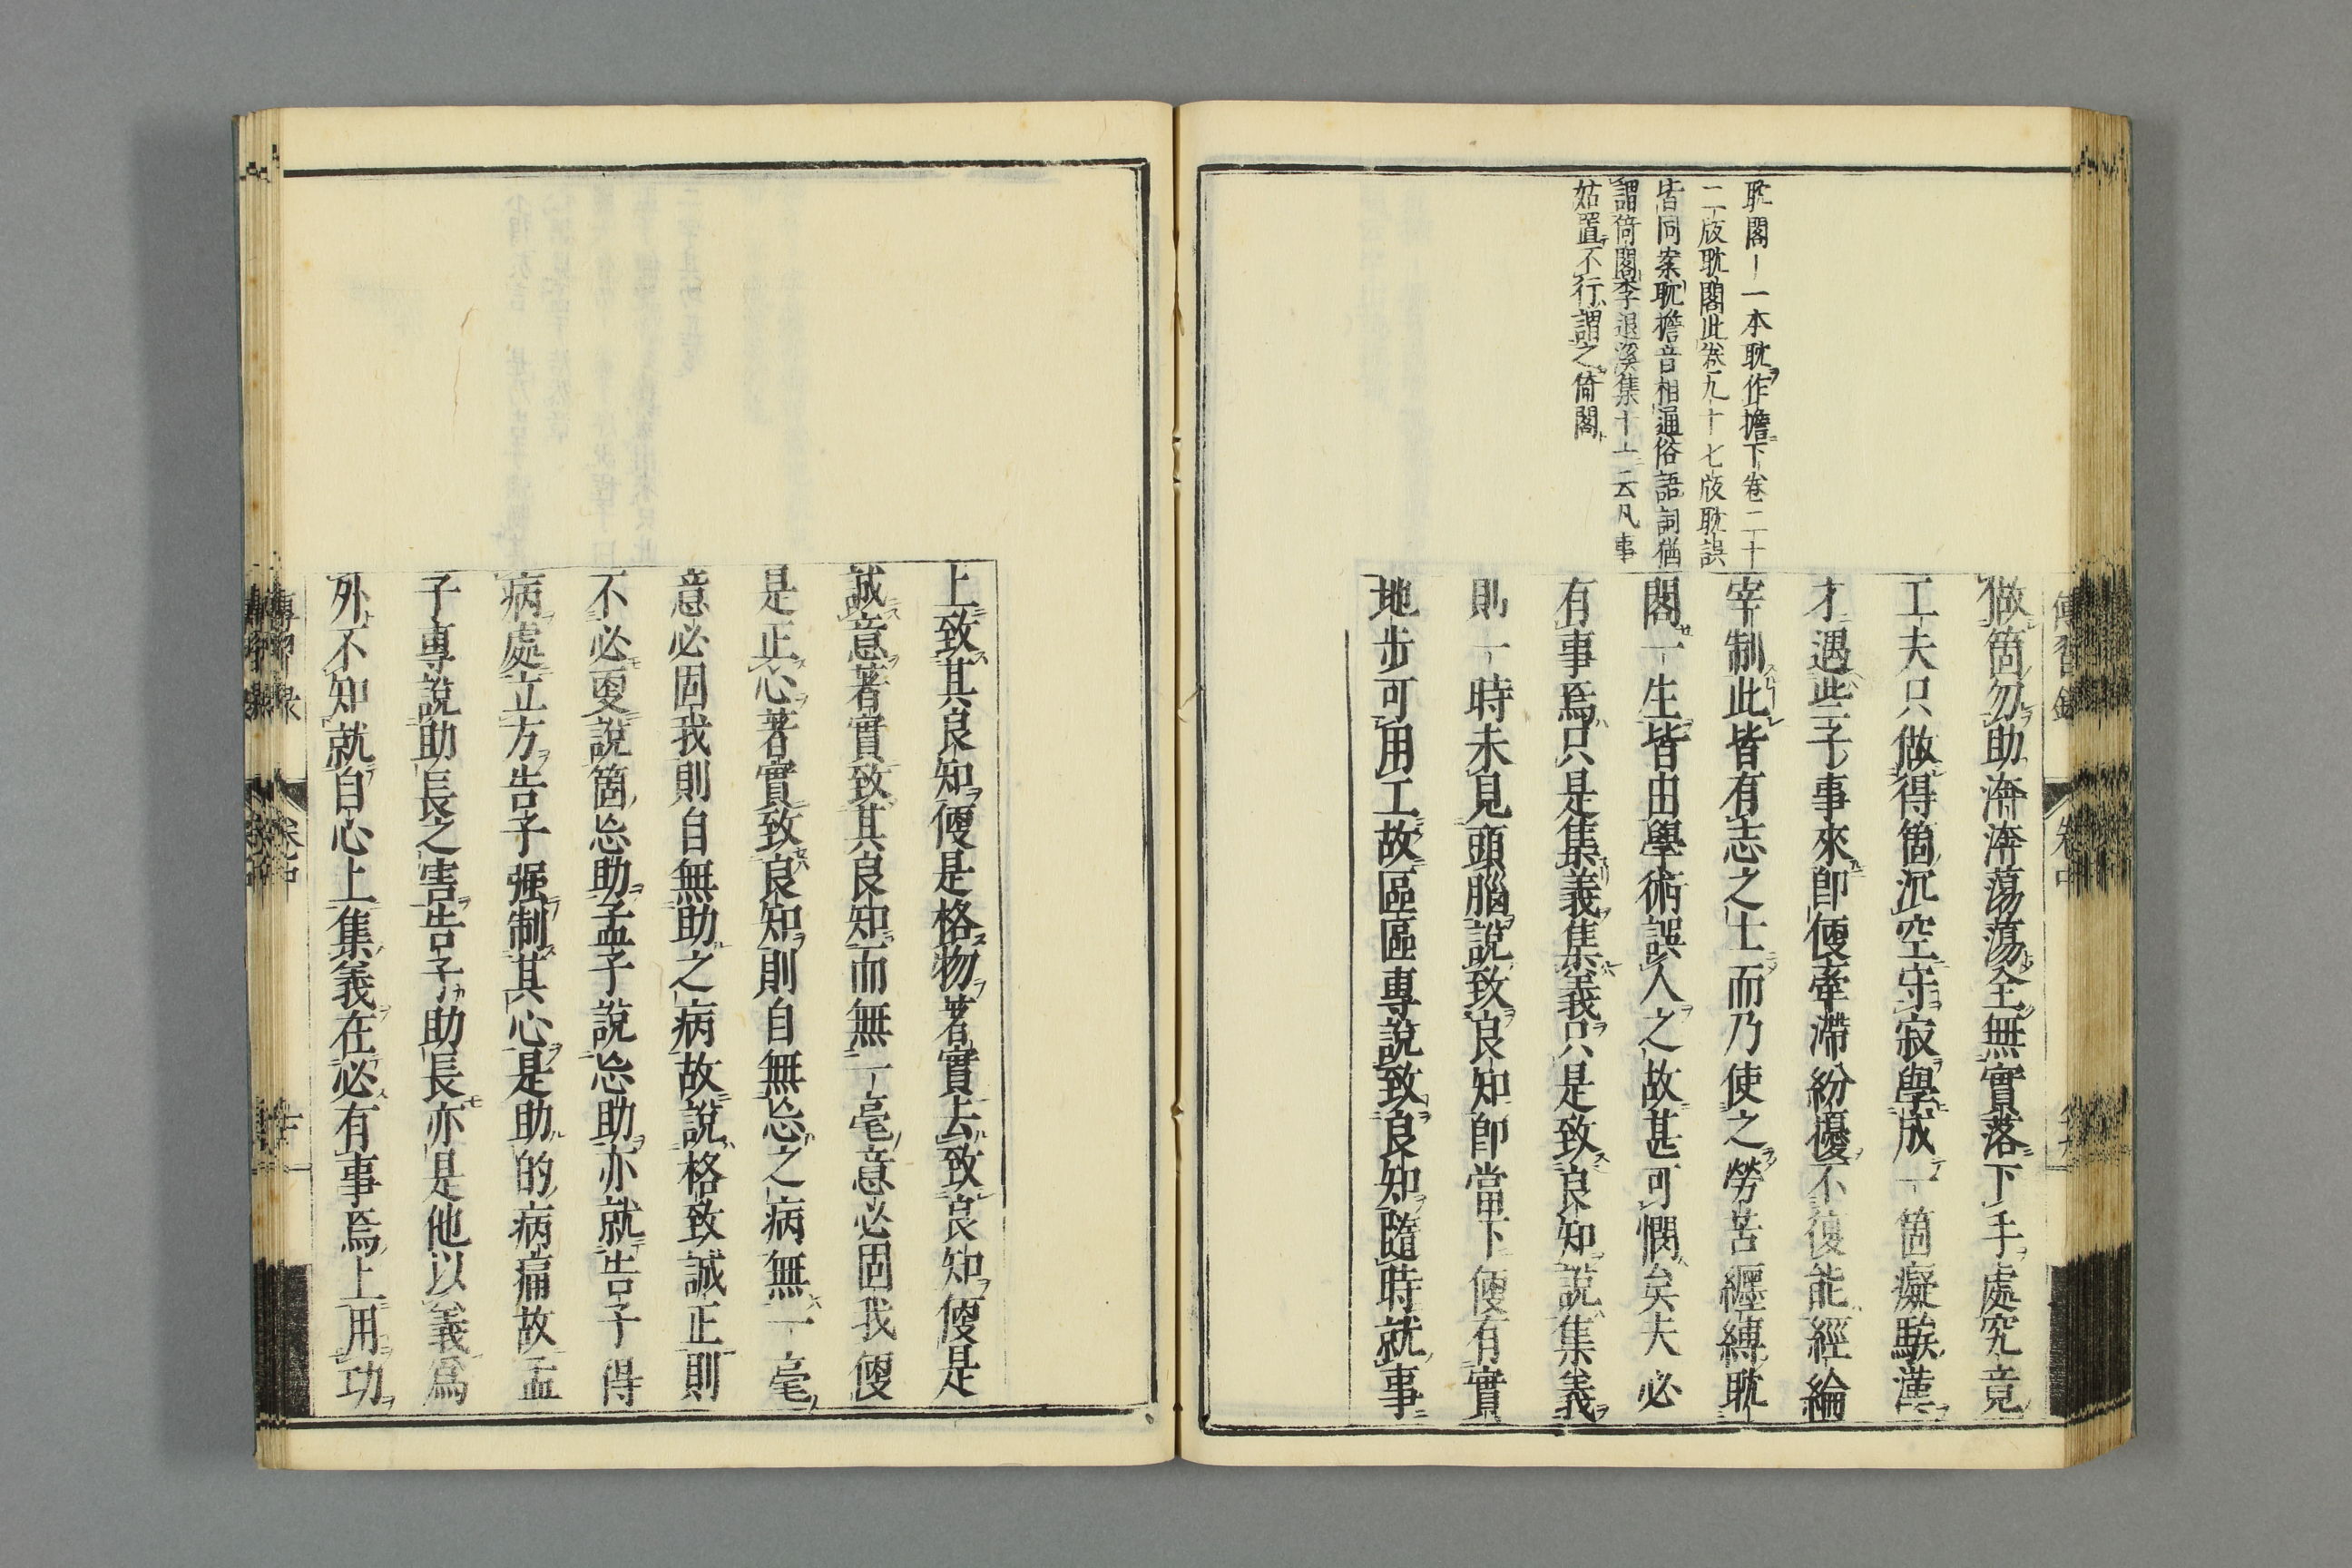 耽閣ー一本耽作擔下卷二十
二版耽閣此卷九十七版耽誤
皆同案耽擔音相通俗語詞猶
謂倚閣李退溪集十一云凡事
姑置不行謂之倚閣
做箇勿助渀渀蕩蕩全無實落下手處究竟
工夫只做得箇沉空守寂學成一箇癡騃漢
才遇些子事來卽便牽滯紛擾不復能經綸
宰制此皆有志之士而乃使之勞苦纏縛耽
閣一生皆由學術誤人之故甚可憫矣夫必
有事焉只是集義集義只是致良知說集義
則一時未見頭腦說致良知卽當下便有實
地步可用工故區區專說致良知隨時就事
上致其良知便是格物著實去致良知便是
誠意著實致其良知而無一毫意必固我便
是正心著實致良知則自無忘之病無一毫
意必固我則自無助之病故說格致誠正則
不必更說箇忘助孟子說忘助亦就告子得
病處立方告子强制其心是助的病痛故孟
子專說助長之害告子助長亦是他以義爲
外不知就自心上集義在必有事焉上用功
傳習錄
卷中